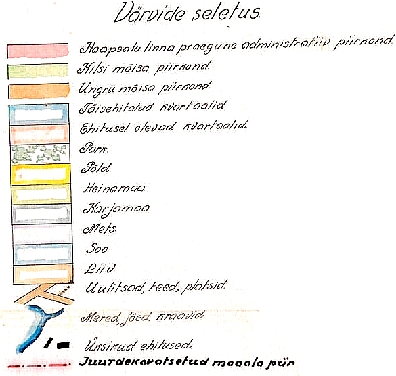 Värvide seletus.
Haapsalu linna praegune administratiiv piirkond.
Kiltsi mõisa piirkond
Ungru mõisa piirkond
Täisehitatud kvartaalid
Ehitusel olevad kvartaalid.
Park.
Põld
Heinamaa
Karjamaa
Mets
Soo
Liiv
Uulitsad, teed, platsid.
Mered, jõed, kraavid
Üksikud ehitused.
Juurdekavatsetud maaala piir